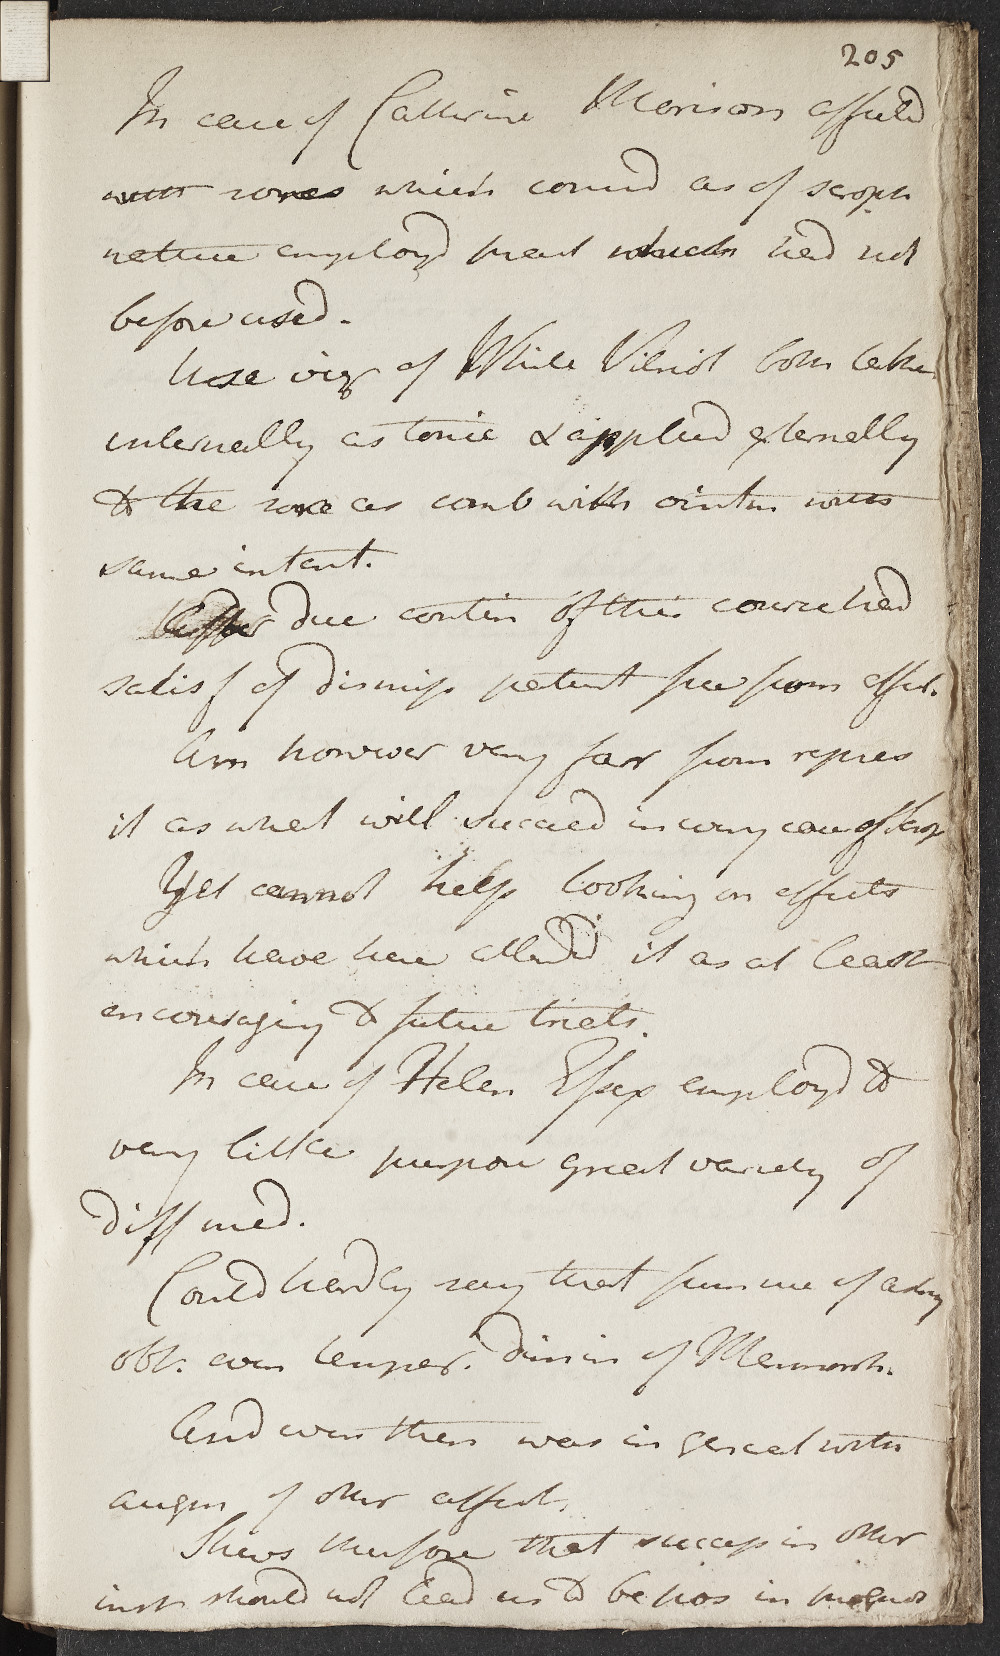 205
In case of Catherine Morison affected
with sores which consid as of scroph
nature employd pract which had not
before used.
These viz of White Vitriol both taken
internally as tonic & applied externally
to the sore as comb with ointm with
same intent.
After due contin of this course had
satisf of dismiss patient free from affect.
Am however very far from repres
it as what will succeed in every case of scrop
Yet cannot help looking on effects
which have here attend it as at least
encouraging to future trials.
In case of Helen Essex employd to
very little purpose great variety of
diff med.
Could hardly say that from use of any
obt. even temper. dimin of Menorrh.
And even then was in general with
augm of other affect.
Shews therefore that success in other
inst should not lead us to be pos in prognos